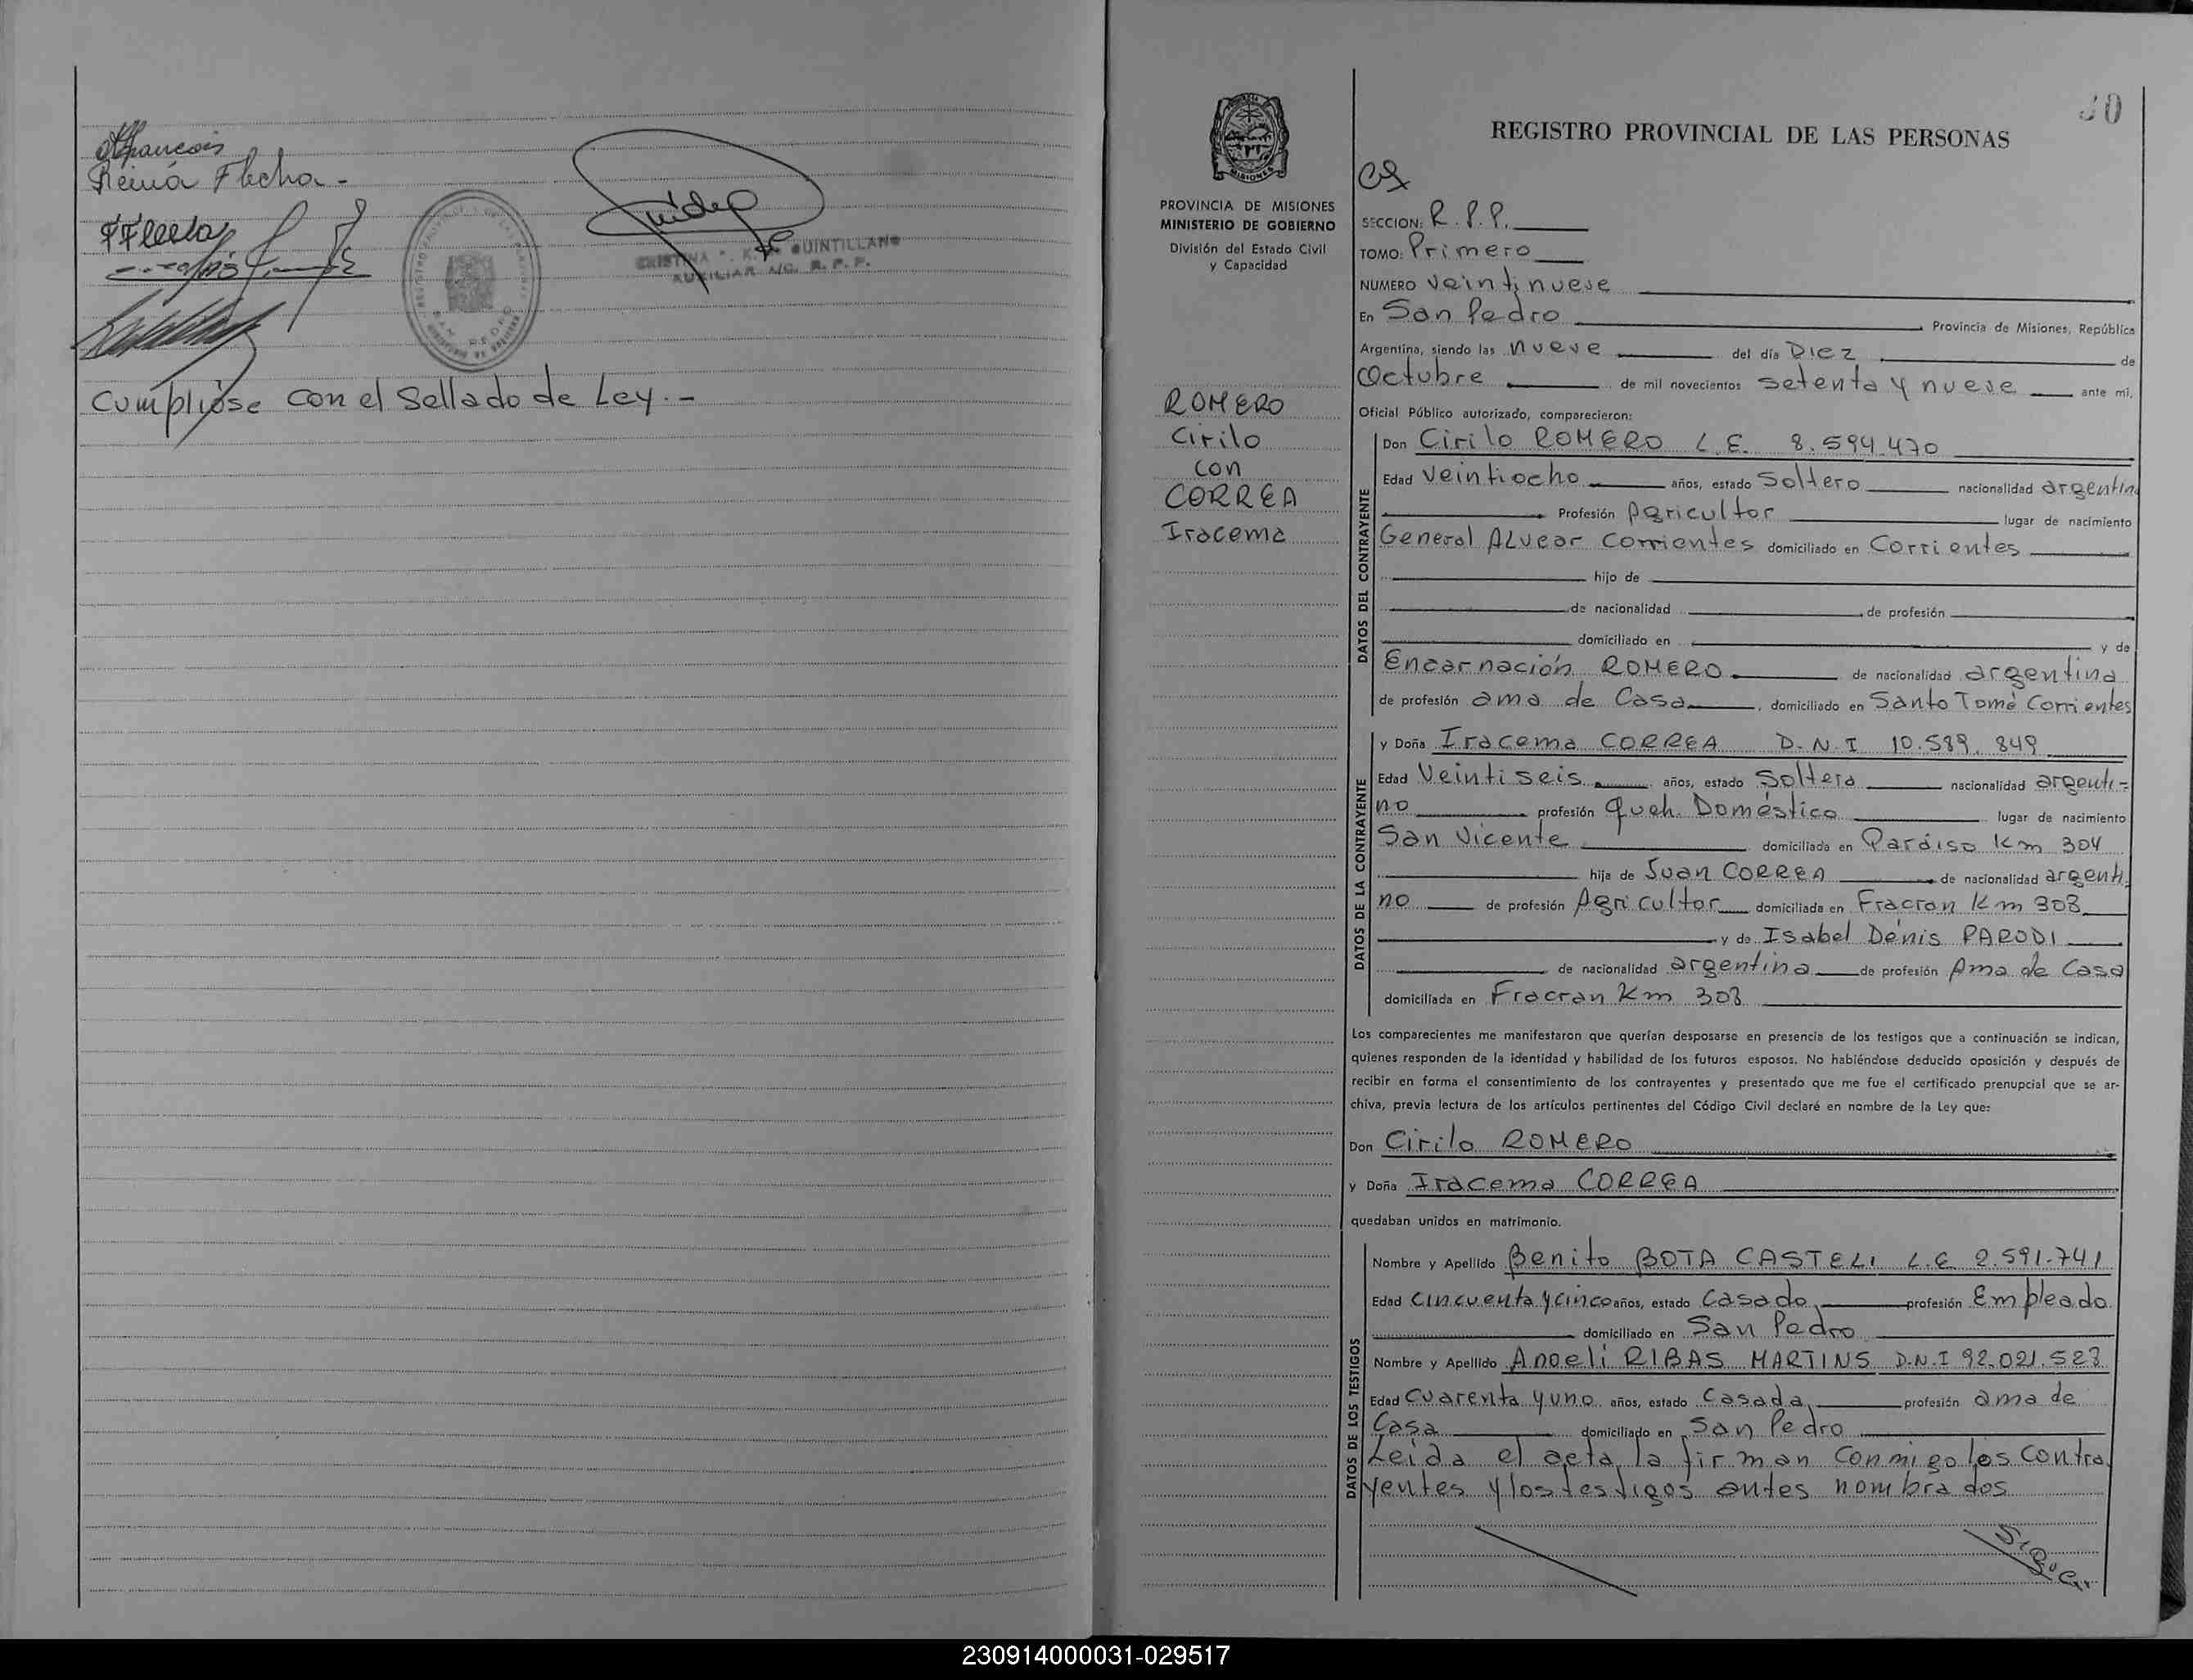 Reina Flecha -
FFlecha
QUINTILLANO
AUXILIAR A/C. R. P. P.
SAN PEDRO
Cumplióse con el Sellado de Ley. -
30
REGISTRO PROVINCIAL DE LAS PERSONAS
PROVINCIA DE MISIONES
MINISTERIO DE GOBIERNO
División del Estado Civil
y Capacidad
ROMERO
Cirilo
con
CORREA
Iracema
SECCION: R. P. P.
TOMO: Primero
NUMERO Veintinueve
En San Pedro Provincia de Misiones, República
Argentina, siendo las nueve del día Diez de
Octubre de mil novecientos setenta y nueve ante mí,
Oficial Público autorizado, comparecieron:
DATOS DEL CONTRAYENTE
Don Cirilo ROMERO L.E. 8.594.470
Edad Veintiocho años, estado Soltero nacionalidad argentina
Profesión Agricultor lugar de nacimiento
General ALvear Corrientes domiciliado en Corrientes
hijo de
de nacionalidad de profesión
domiciliado en y de
Encarnación ROMERO de nacionalidad argentina
de profesión ama de Casa, domiciliado en Santo Tomé Corrientes
DATOS DE LA CONTRAYENTE
y Doña Iracema CORREA D.N.I 10.589.849
Edad Veintiseis años, estado Soltera nacionalidad argenti-
no profesión Queh. Doméstico lugar de nacimiento
San Vicente domiciliada en Paráiso Km 304
hija de Juan CORREA de nacionalidad argenti
no de profesión Agricultor domiciliada en Fracran Km 303
y de Isabel Denis PARODI
de nacionalidad argentina de profesión Ama de Casa
domiciliada en Fracran Km 303
Los comparecientes me manifestaron que querían desposarse en presencia de los testigos que a continuación se indican,
quienes responden de la identidad y habilidad de los futuros esposos. No habiéndose deducido oposición y después de
recibir en forma el consentimiento de los contrayentes y presentado que me fue el certificado prenupcial que se ar-
chiva, previa lectura de los artículos pertinentes del Código Civil declaré en nombre de la Ley que:
Don Cirilo ROMERO
y Doña Iracema CORREA
quedaban unidos en matrimonio.
DATOS DE LOS TESTIGOS
Nombre y Apellido Benito BOTA CASTELI L.E. 2.591.741
Edad Cincuenta y cinco años, estado Casado profesión Empleado
domiciliado en San Pedro
Nombre y Apellido Anoeli RIBAS MARTINS D.N.I 92.021.523
Edad Cuarenta y uno años, estado Casada profesión ama de
Casa domiciliado en San Pedro
Leida el acta, la firman conmigo los contra
yentes y los testigos antes nombrados
Sigue.
230914000031-029517